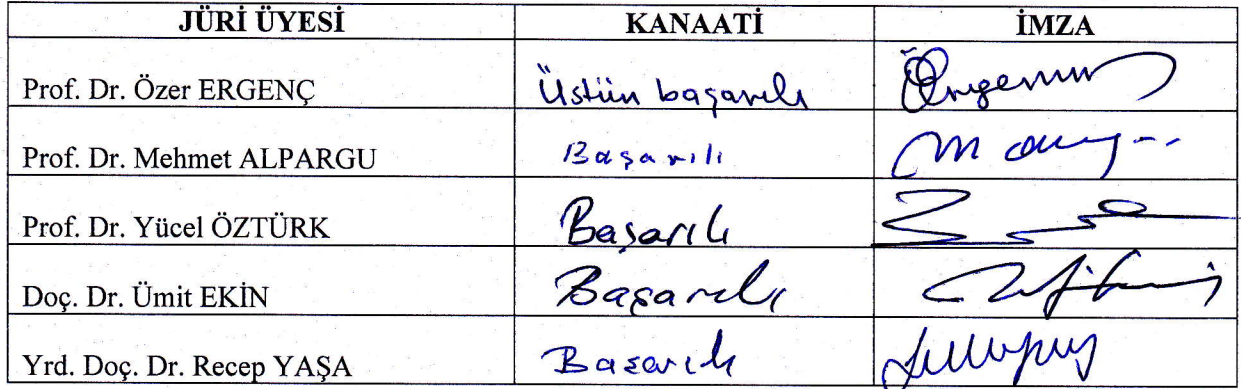 JÜRİ ÜYESİ KANAATİ İMZA
Prof. Dr. Özer ERGENÇ Üstün başarılı
Prof. Dr. Mehmet ALPARGU Başarılı
Prof. Dr. Yücel ÖZTÜRK Başarılı
Doç. Dr. Ümit EKİN Başarılı
Yrd. Doç. Dr. Recep YAŞA Başarılı